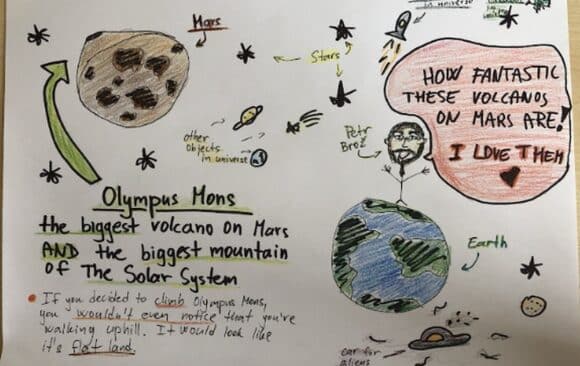 Mars
in universe
Stars
HOW FANTASTIC
THESE VOLCANOS
ON MARS ARE!
I LOVE THEM
Petr
Brož
other
objects
in universe
Olympus Mons
the biggest volcano on Mars
AND the biggest mountain
of The Solar System
Earth
If you decided to climb Olympus Mons,
you wouldn't even notice that you're
walking uphill. It would look like
it's flat land.
car for
aliens